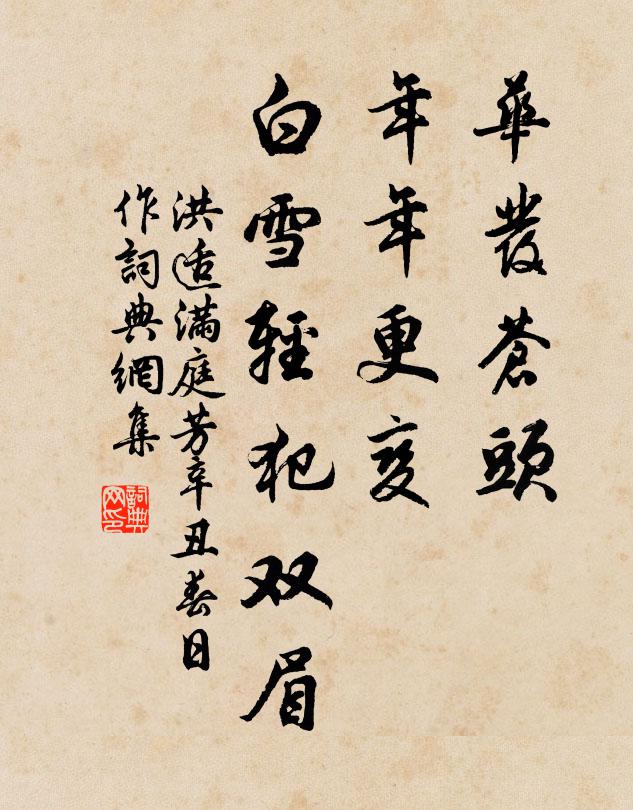 華發蒼頭
年年更变
白雪輕犯双眉
洪适滿庭芳辛丑春日
作詞典網集
詞典网印